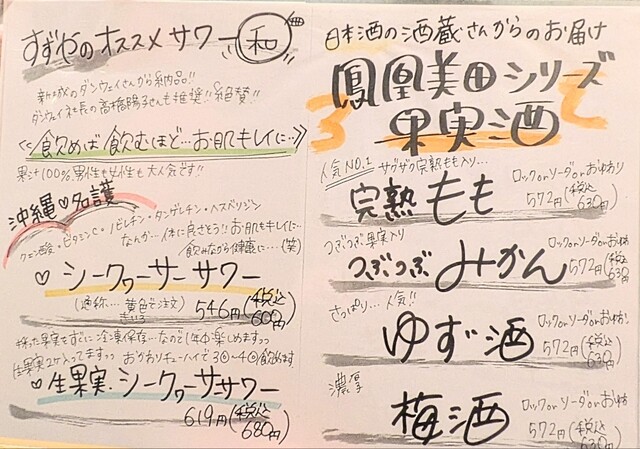 すずやのオススメサワー 和
新城のダンウェイさんから納品!!
ダンウェイ社長の高橋陽子さんも推奨!!絶賛!!
《飲めば飲むほど…お肌もキレイに…》
果汁100%男性も女性も大人気です!!
沖縄♡名護
クエン酸・ビタミンC・ノビレチン・タンゲレチン・ヘスペリジン
なんか…体に良さそう!!お肌もキレイに…
飲みながら健康に…(笑)
♡シークワーサーサワー
(通称…黄色で注文)
きいろ
546円(税込600円)
採った果実をすぐに冷凍保存…なので1年中楽しめます
生果実2ケ入ってます おかわりチューハイで3〜4飲めます
♡生果実・シークワーサーサワー
619円(税込680円)
日本酒の酒蔵さんからのお届け
鳳凰美田シリーズ
果実酒
人気NO.1 ザクザク完熟もも入り…
完熟もも
ロックorソーダorおゆわり
572円(税込630円)
つぶつぶ果実入り
つぶつぶみかん
ロックorソーダorおゆわ
572円(税込630円)
さっぱり…人気!!
ゆず酒
ロックorソーダorおゆわり
572円(税込630円)
濃厚
梅酒
ロックorソーダorおゆわ
572円(税込630円)